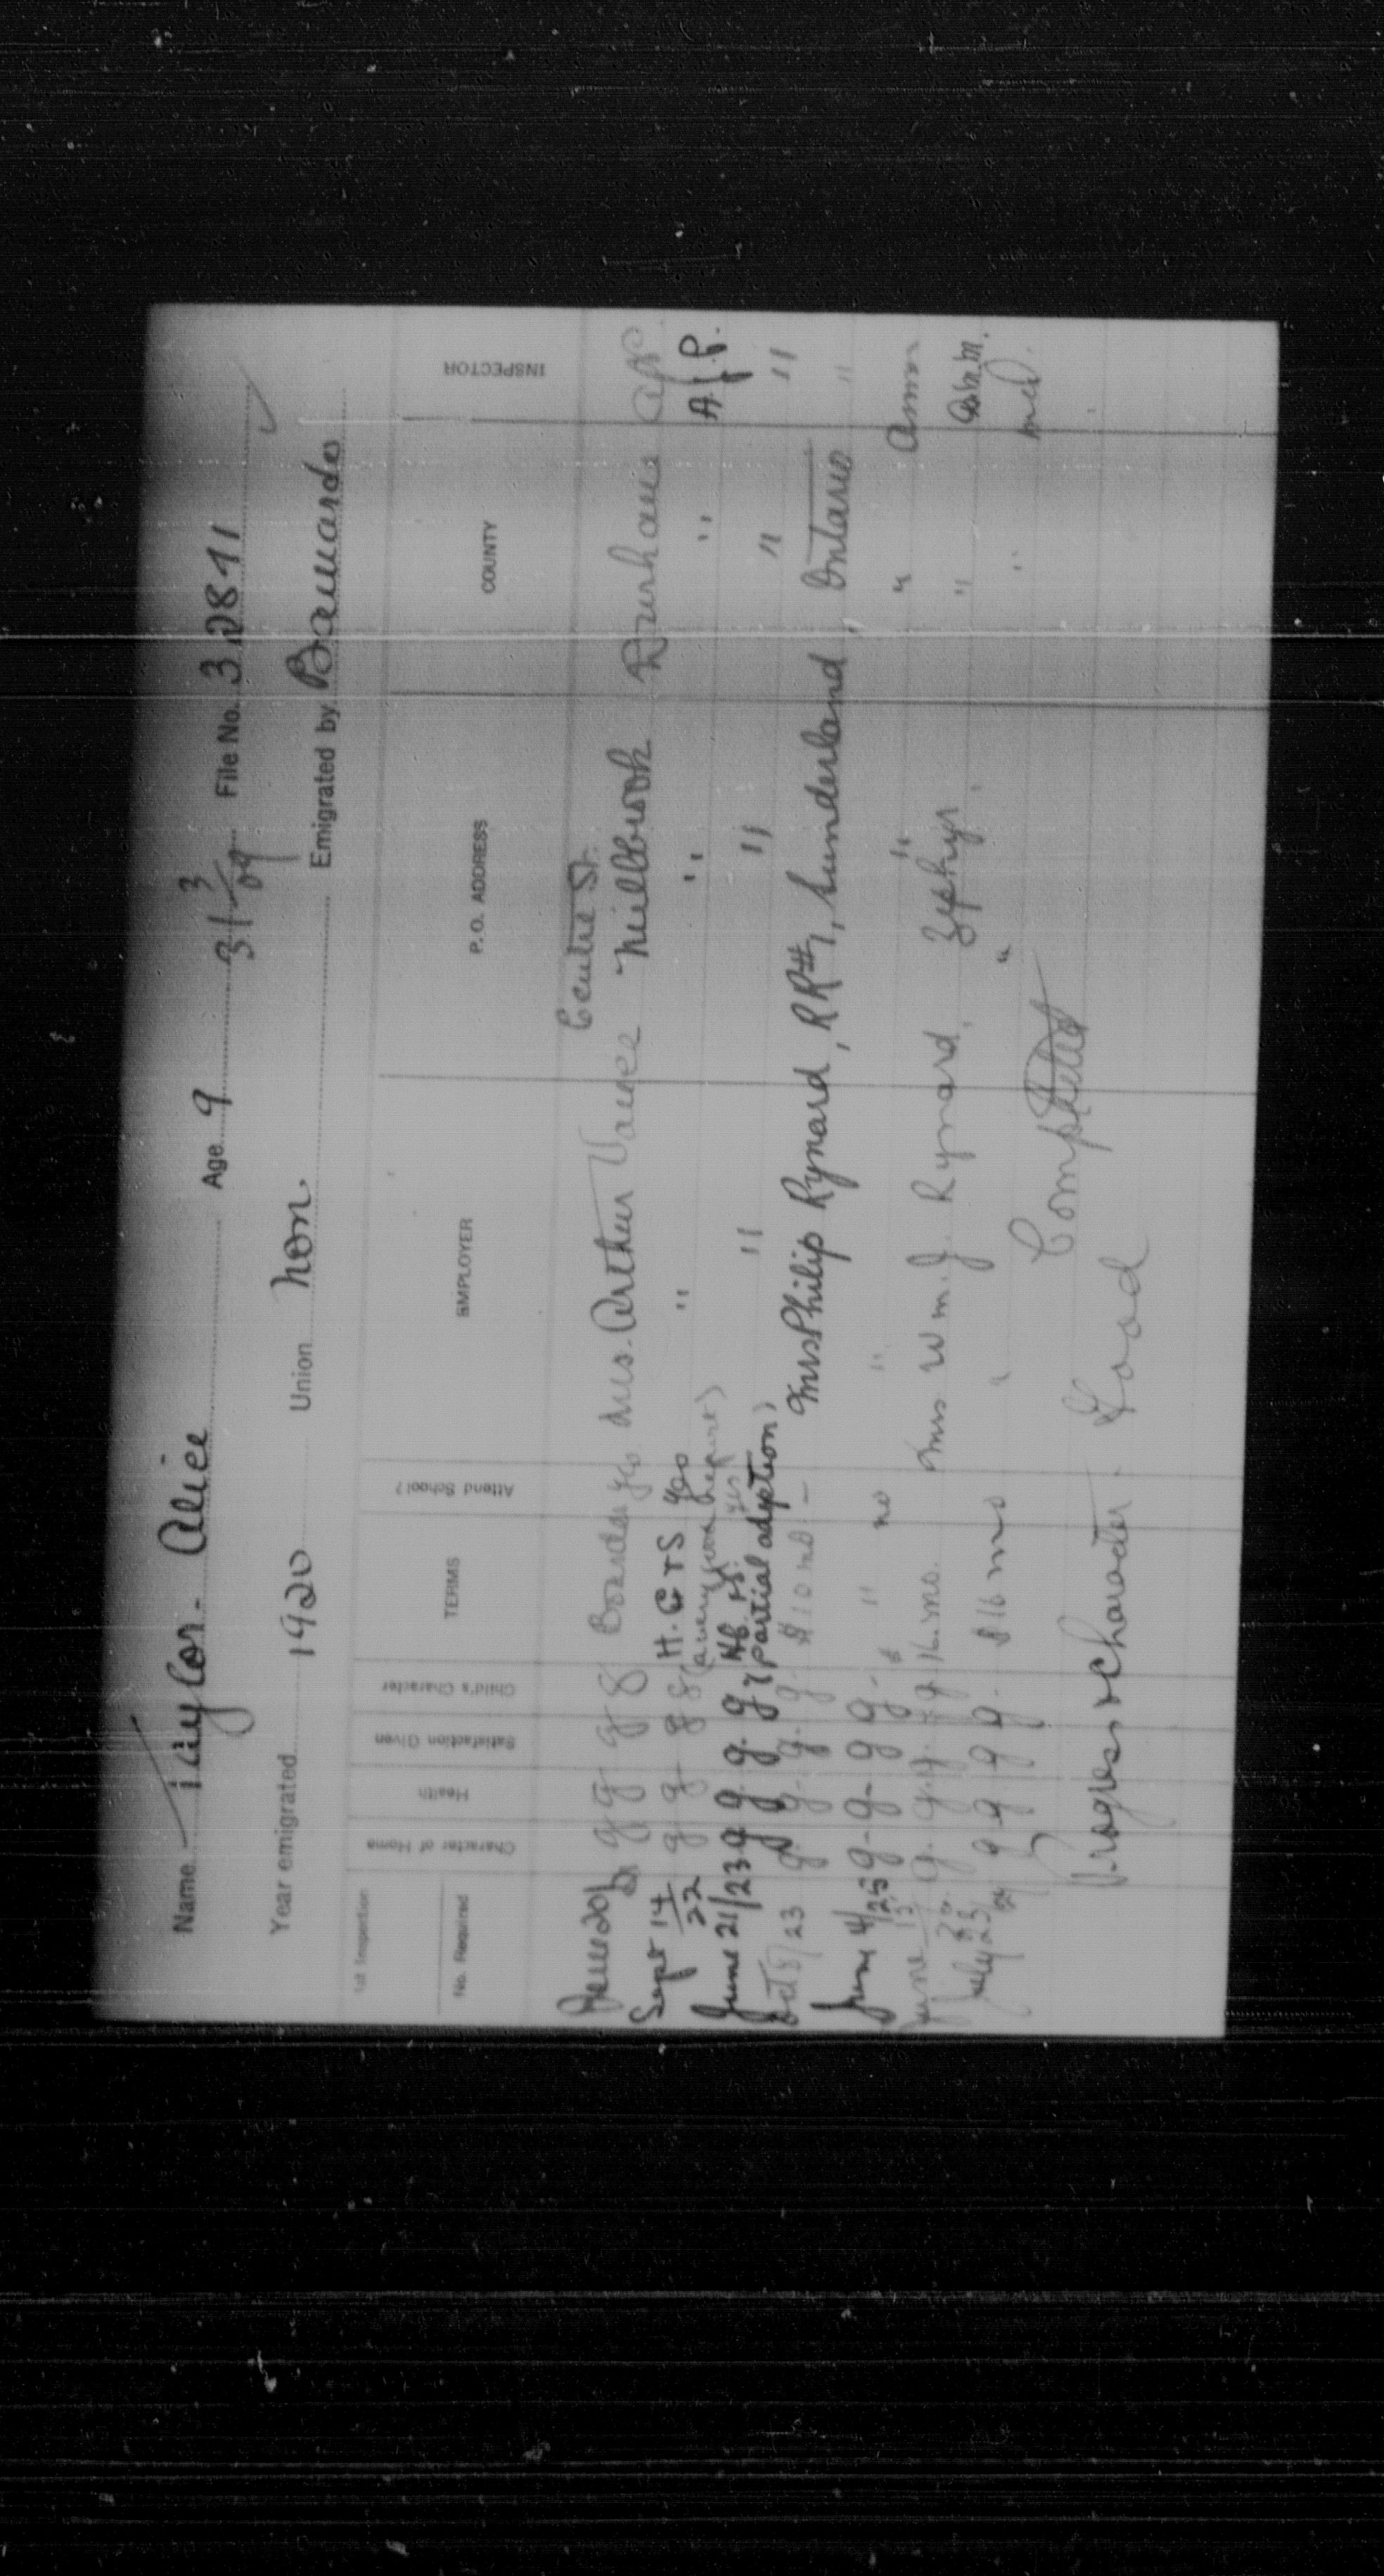 Name Taylor - Alice Age 9 31/3/09 File No. 32841
Year emigrated 1920 Union Non. Emigrated by Barnardo
1st Inspection
No. Required Character of Home Health Satisfaction Given Child's Character TERMS Attend School? EMPLOYER P.O. ADDRESS COUNTY INSPECTOR
Centre St.
June 20/ g g g g Boarder yes Mrs. Arthur Vance Millbrook Durham
Sept 14/22 g g g g H. C & S yes " " " A.J.P.
(a very good home)
June 21/23 g g g g yes
g g g g (partial adoption) " " " "
Oct 5/23 g g. g. g. $10 mo - Mrs Philip Rynard, RR#1, Sunderland, Ontario "
June 4/25 g - g - g g - " no " " "
June g. g. g. g 16. mo. Mrs Wm. J. Rynard, Zephyr, "
July 23 g g g g. $16 mo " " "
Completed
Progress & Character - Good